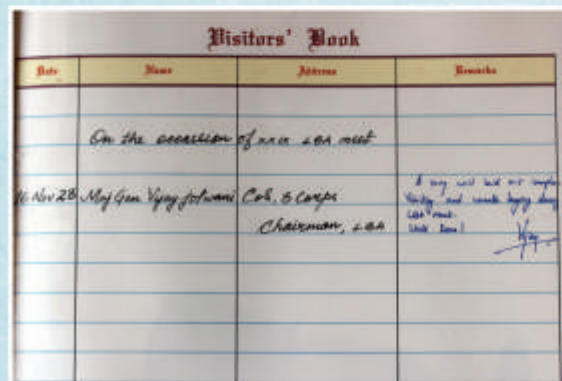 Visitors' Book
Date Name Address Remarks
On the occassion of xxix LBA meet
16 Nov 23 Maj Gen Vijay Jotwani CoS, 8 Corps A very well laid out complex
Chairman, LBA and
LBA meet.
Well Done!
Vijay